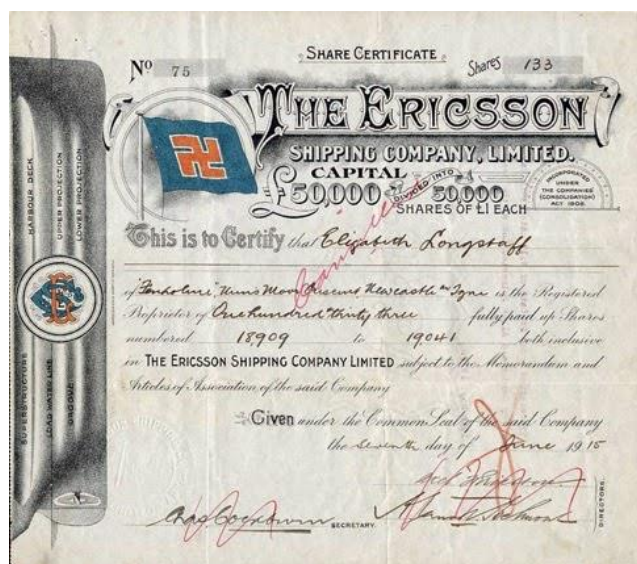 SHARE CERTIFICATE
No 75
Shares 133
THE ERICSSON
SHIPPING COMPANY, LIMITED.
CAPITAL
£50,000 DIVIDED INTO 50,000
SHARES OF £1 EACH
INCORPORATED
UNDER
THE COMPANIES
(CONSOLIDATION)
ACT 1908.
This is to Certify that Elizabeth Longstaff
of Moor Crescent Newcastle on Tyne is the Registered
Proprietor of One hundred thirty three fully paid up Shares
numbered 18909 to 19041 both inclusive
in THE ERICSSON SHIPPING COMPANY LIMITED subject to the Memorandum and
Articles of Association of the said Company
Given under the Common Seal of the said Company
the Seventh day of June 1915
SECRETARY.
DIRECTORS.
HARBOUR DECK
UPPER PROJECTION
LOWER PROJECTION
SUPERSTRUCTURE
LOAD WATER LINE
GROOVE
Cancelled